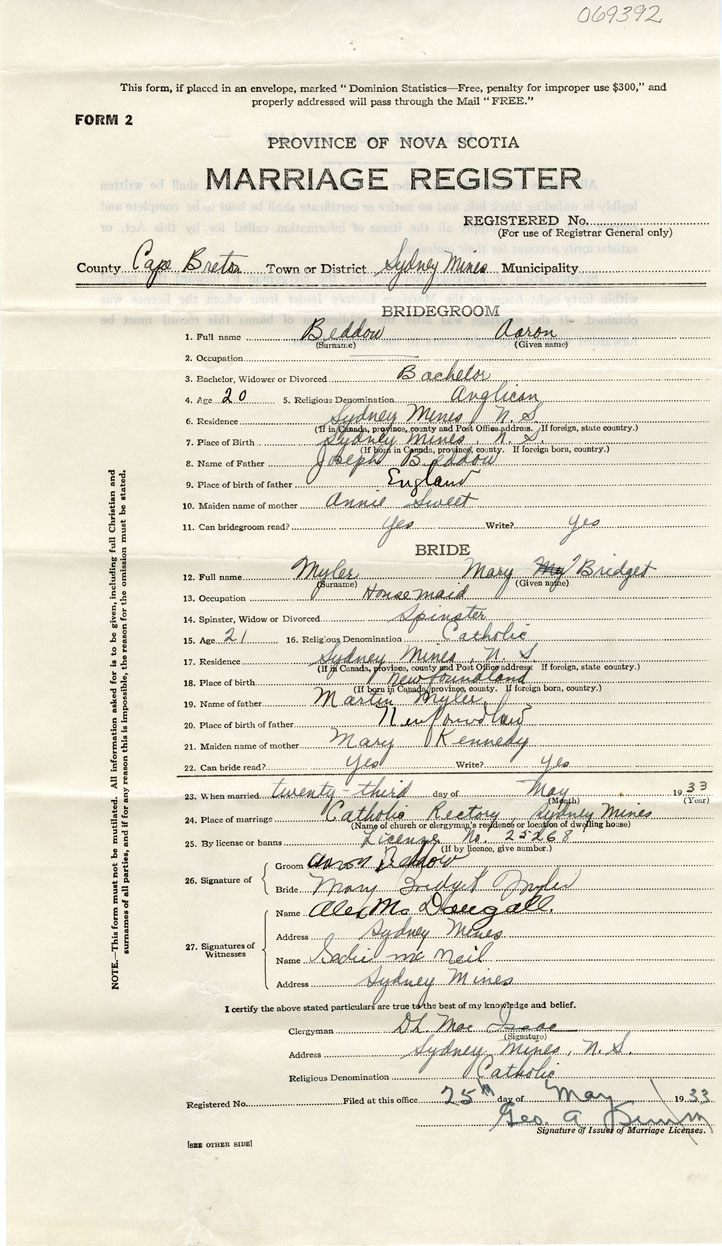 069392
This form, if placed in an envelope, marked "Dominion Statistics—Free, penalty for improper use $300," and
properly addressed will pass through the Mail "FREE."
FORM 2
PROVINCE OF NOVA SCOTIA
MARRIAGE REGISTER
REGISTERED No.
(For use of Registrar General only)
County Cape Breton Town or District Sydney Mines Municipality
BRIDEGROOM
1. Full name Beddow Aaron
(Surname) (Given name)
2. Occupation
3. Bachelor, Widower or Divorced Bachelor
4. Age 20 5. Religious Denomination Anglican
6. Residence Sydney Mines, N.S.
(If in Canada, province, county and Post Office address. If foreign, state country.)
7. Place of Birth Sydney Mines, N.S.
(If born in Canada, province, county. If foreign born, country.)
8. Name of Father Joseph Beddow
9. Place of birth of father England
10. Maiden name of mother Annie Sweet
11. Can bridegroom read? Yes Write? Yes
BRIDE
12. Full name Myler Mary Bridget
(Surname) (Given name)
13. Occupation Housemaid
14. Spinster, Widow or Divorced Spinster
15. Age 21 16. Religious Denomination Catholic
17. Residence Sydney Mines, N.S.
(If in Canada, province, county and Post Office address. If foreign, state country.)
18. Place of birth Newfoundland
(If born in Canada, province, county. If foreign born, country.)
19. Name of father Martin Myler
20. Place of birth of father Newfoundland
21. Maiden name of mother Mary Kennedy
22. Can bride read? Yes Write? Yes
23. When married twenty-third day of May 1933
(Month) (Year)
24. Place of marriage Catholic Rectory, Sydney Mines
(Name of church or clergyman's residence or location of dwelling house)
25. By license or banns License No. 25268
(If by licence, give number.)
26. Signature of
Groom Aaron Beddow
Bride Mary Bridget Myler
27. Signatures of Witnesses
Name Alex Mc Dougall.
Address Sydney Mines
Name Sadie McNeil
Address Sydney Mines
I certify the above stated particulars are true to the best of my knowledge and belief.
Clergyman D.L. Mac Isaac
(Signature)
Address Sydney Mines, N.S.
Religious Denomination Catholic
Registered No. Filed at this office 25th day of May 1933
Geo. A
Signature of Issuer of Marriage Licenses.
[SEE OTHER SIDE]
NOTE.—This form must not be mutilated. All information asked for is to be given, including full Christian and
surnames of all parties, and if for any reason this is impossible, the reason for the omission must be stated.